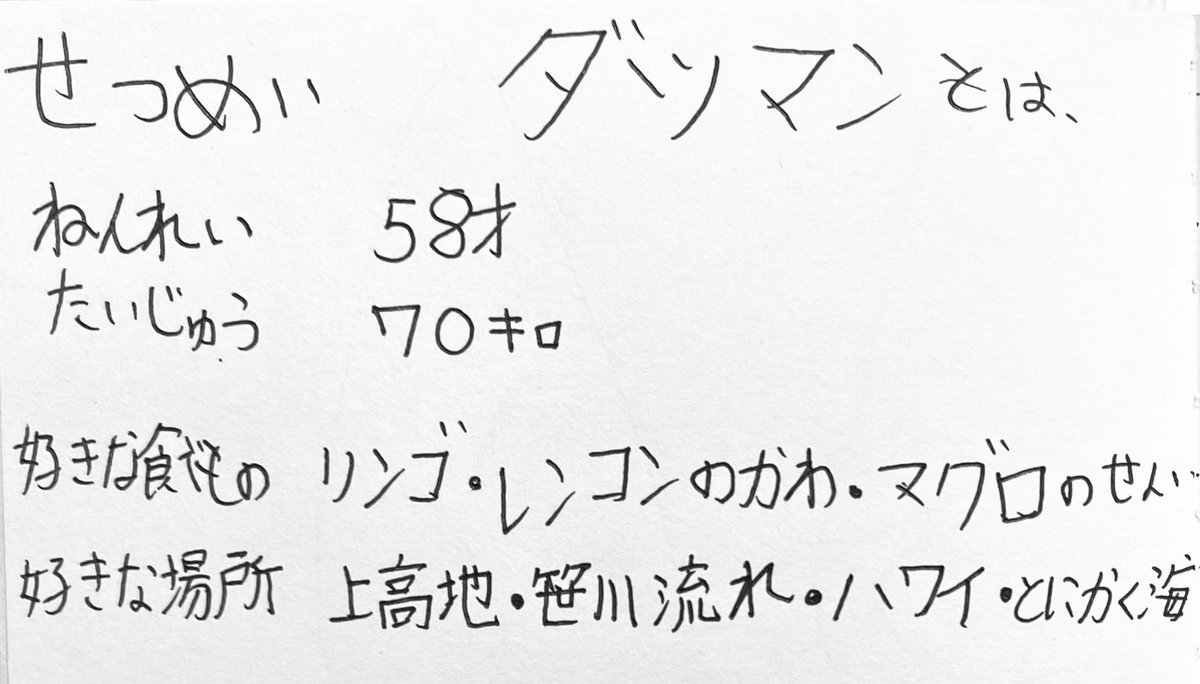 せつめい ダツマンとは、
ねんれい 58才
たいじゅう 70キロ
好きな食べもの リンゴ・レンコンのかわ・マグロのせんい
好きな場所 上高地・笹川流れ・ハワイ・とにかく海